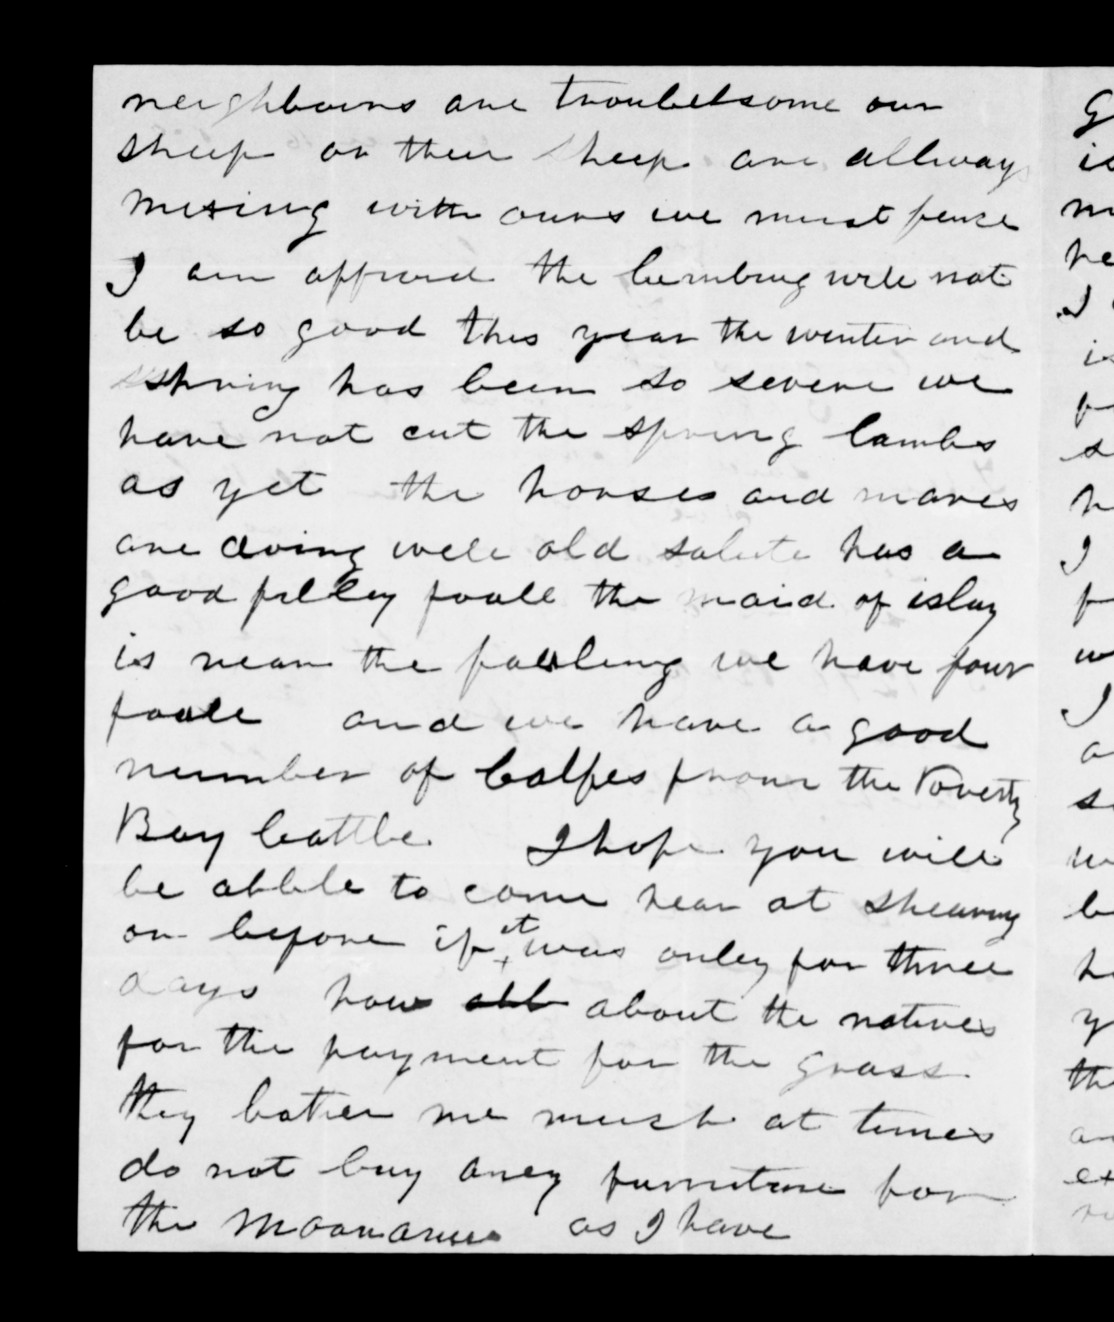 neighbours are troubelsome our
sheep or their sheep are allways
mixing with ours we must fence
I am affraid the lumbing will not
be so good this year the winter and
spring has been so severe we
have not cut the spring lambs
as yet the horses and mares
are doing well old salute has a
good filley foall the maid of islay
is near the foalling we have four
foall and we have a good
number of Calfes from the Poverty
Bay Cattle. I hope you will
be abble to come hear at shearing
or before if it was onley for three
days how abb about the natives
for the payment for the grass
they bother me much at times
do not buy aney furniture for
the as I have
G
is
m
he
I
is
f
s
h
I
f
w
I
a
s
w
b
h
y
the
an
ex